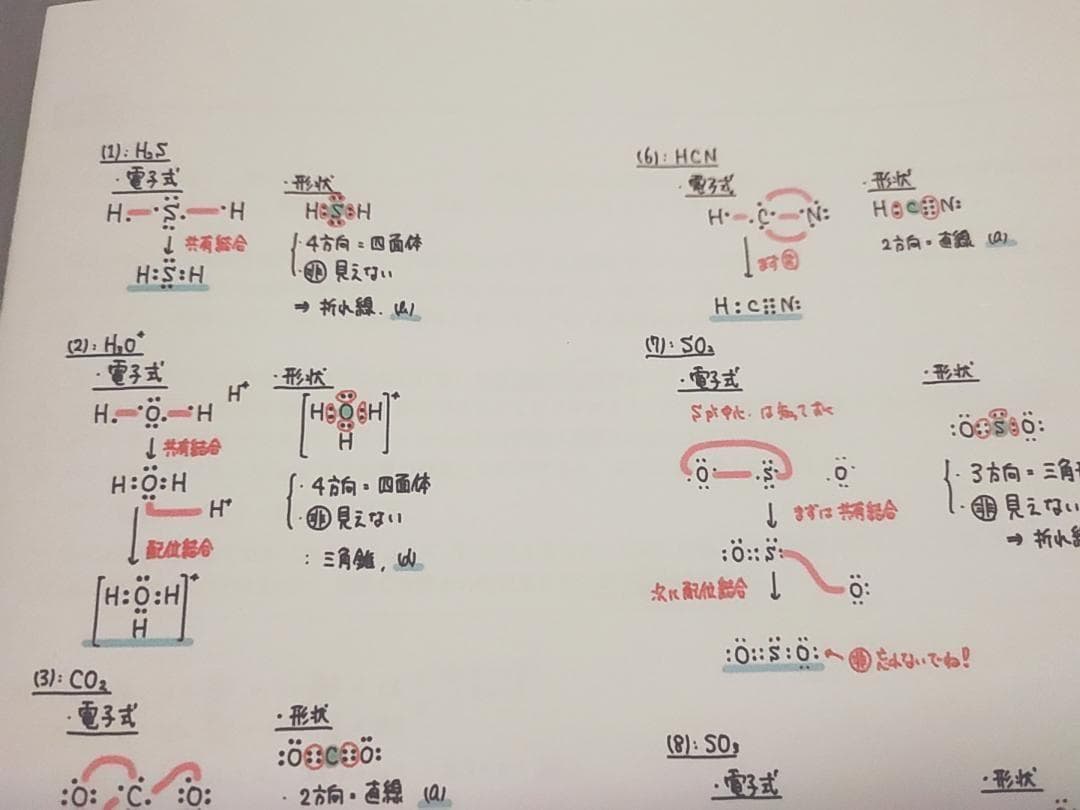 (1): H₂S
・電子式
H. ・S. ・H
↓ 共有結合
H:S:H
・形状
H:S:H
・4方向=四面体
・非 見えない
⇒ 折れ線.
(2): H₃O⁺
・電子式
H. ・O. ・H H⁺
↓ 共有結合
H:O:H
H⁺
↓ 配位結合
[H:O:H]⁺
H
・形状
[H:O:H]⁺
H
・4方向=四面体
・非 見えない
: 三角錐, (d)
(3): CO₂
・電子式
:O・ ・C・ ・O:
・形状
:O::C::O:
・2方向=直線 (a)
(6): HCN
・電子式
H・ ・C・ ・N:
↓ まず
H:C⋮⋮N:
・形状
H:C⋮⋮N:
2方向=直線 (a)
(7): SO₂
・電子式
・O・ ・S・ ・O
↓ まずは共有結合
:O::S:
次に配位結合 ↓
O:
:O::S:O: ← 非 忘れないでね!
・形状
:O::S:O:
・3方向=三角
・非 見えない
⇒ 折れ線
(8): SO₃
・電子式
・形状